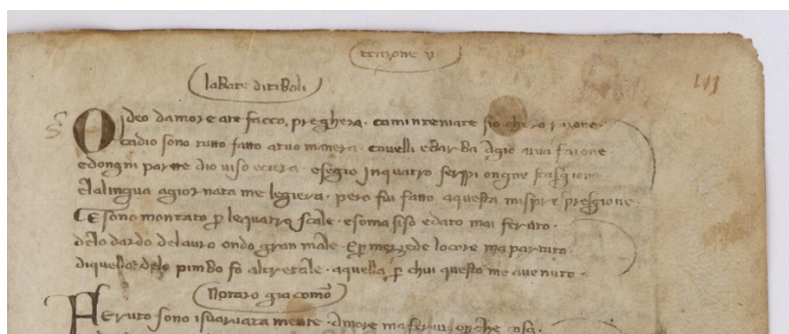 tenzone v
labate ditiboli
Oideo damore ate facco, preghera · caminteniate sio chero rasone ·
cadio sono tutto fatto atuo manera · cavelli ebarba agio atua fazone ·
edongni parte dio viso eciera · eseggio inquatro serppi ongne stasgione ·
elalingua agiornata me legiera · pero fui fatto aquesta
E sono montato p lequatro scale · esoma siso edato mai feruto ·
delo dardo delauro ondo gran male · ep merzede locore ma partuto ·
diquello delo pimbo fo altretale · aquella p chui questo me avenuto ·
Notaro giacomo
Feruto sono isdarvata mente · Amore maferuto